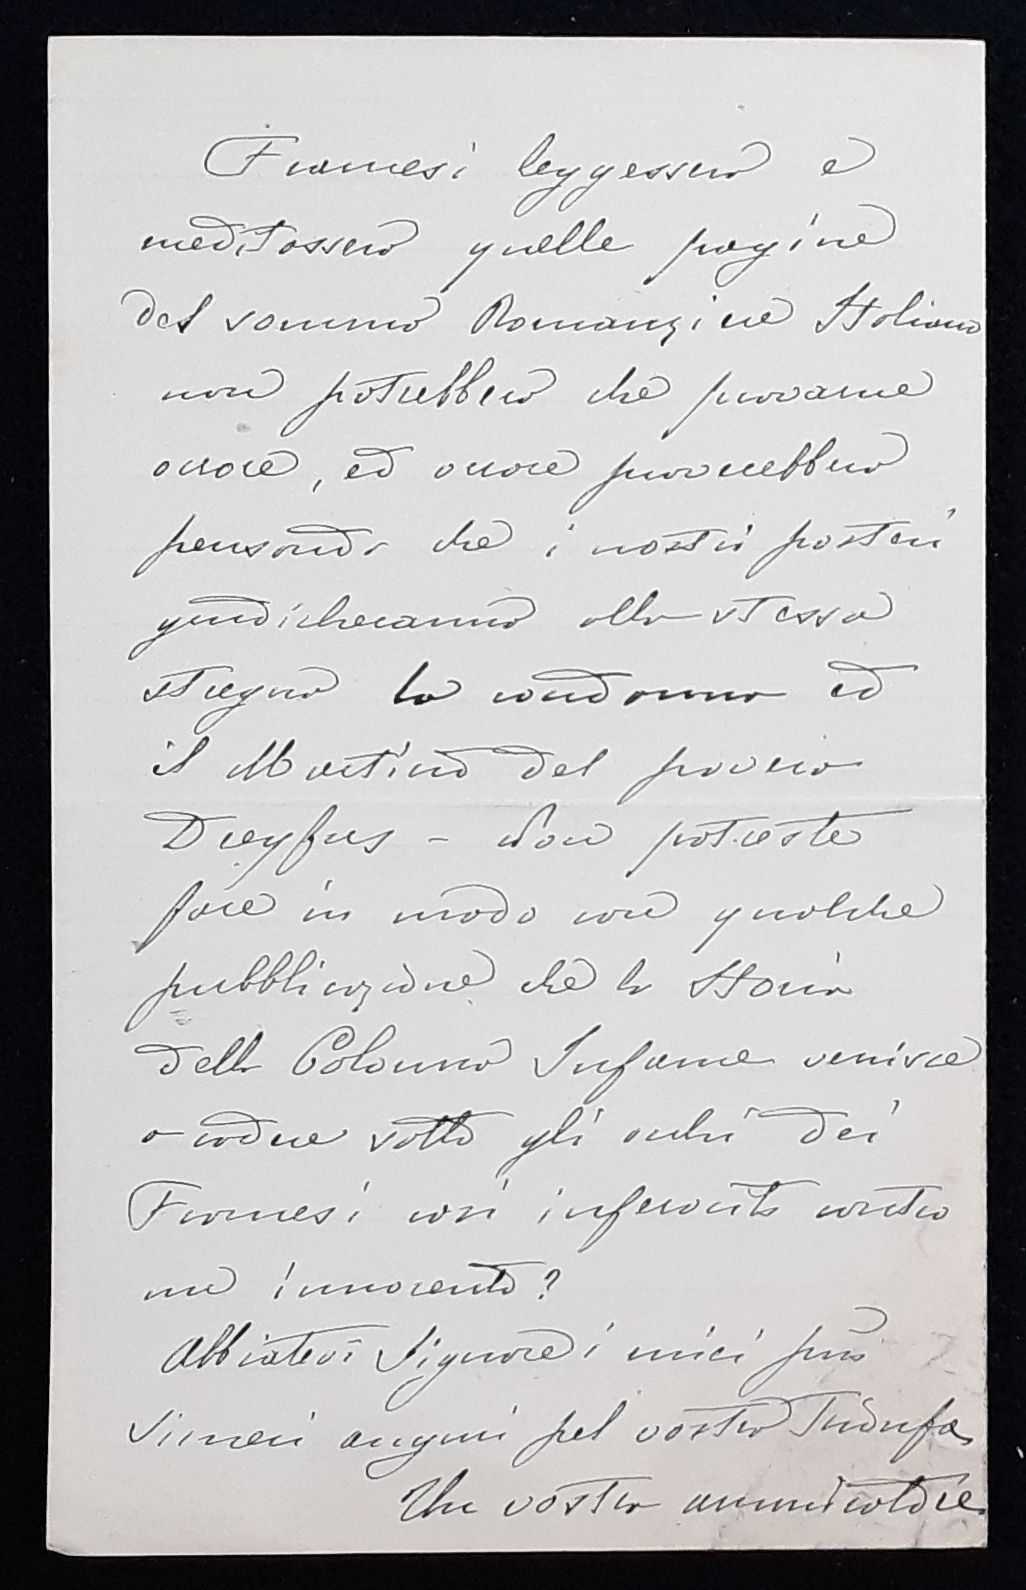 Francesi leggessero e
meditassero quelle pagine
del sommo Romanziere Italiano
non potrebbero che provarne
orrore, ed orrore proverebbero
pensando che i nostri posteri
giudicheranno alla stessa
stregua la condanna ed
il Martirio del povero
Dreyfus - Non potreste
fare in modo con qualche
pubblicazione che la Storia
della Colonna Infame venisse
a cadere sotto gli occhi dei
Francesi così inferociti contro
un innocente?
Abbiatevi Signore i miei più
sinceri auguri pel vostro Trionfo,
Un vostro ammiratore